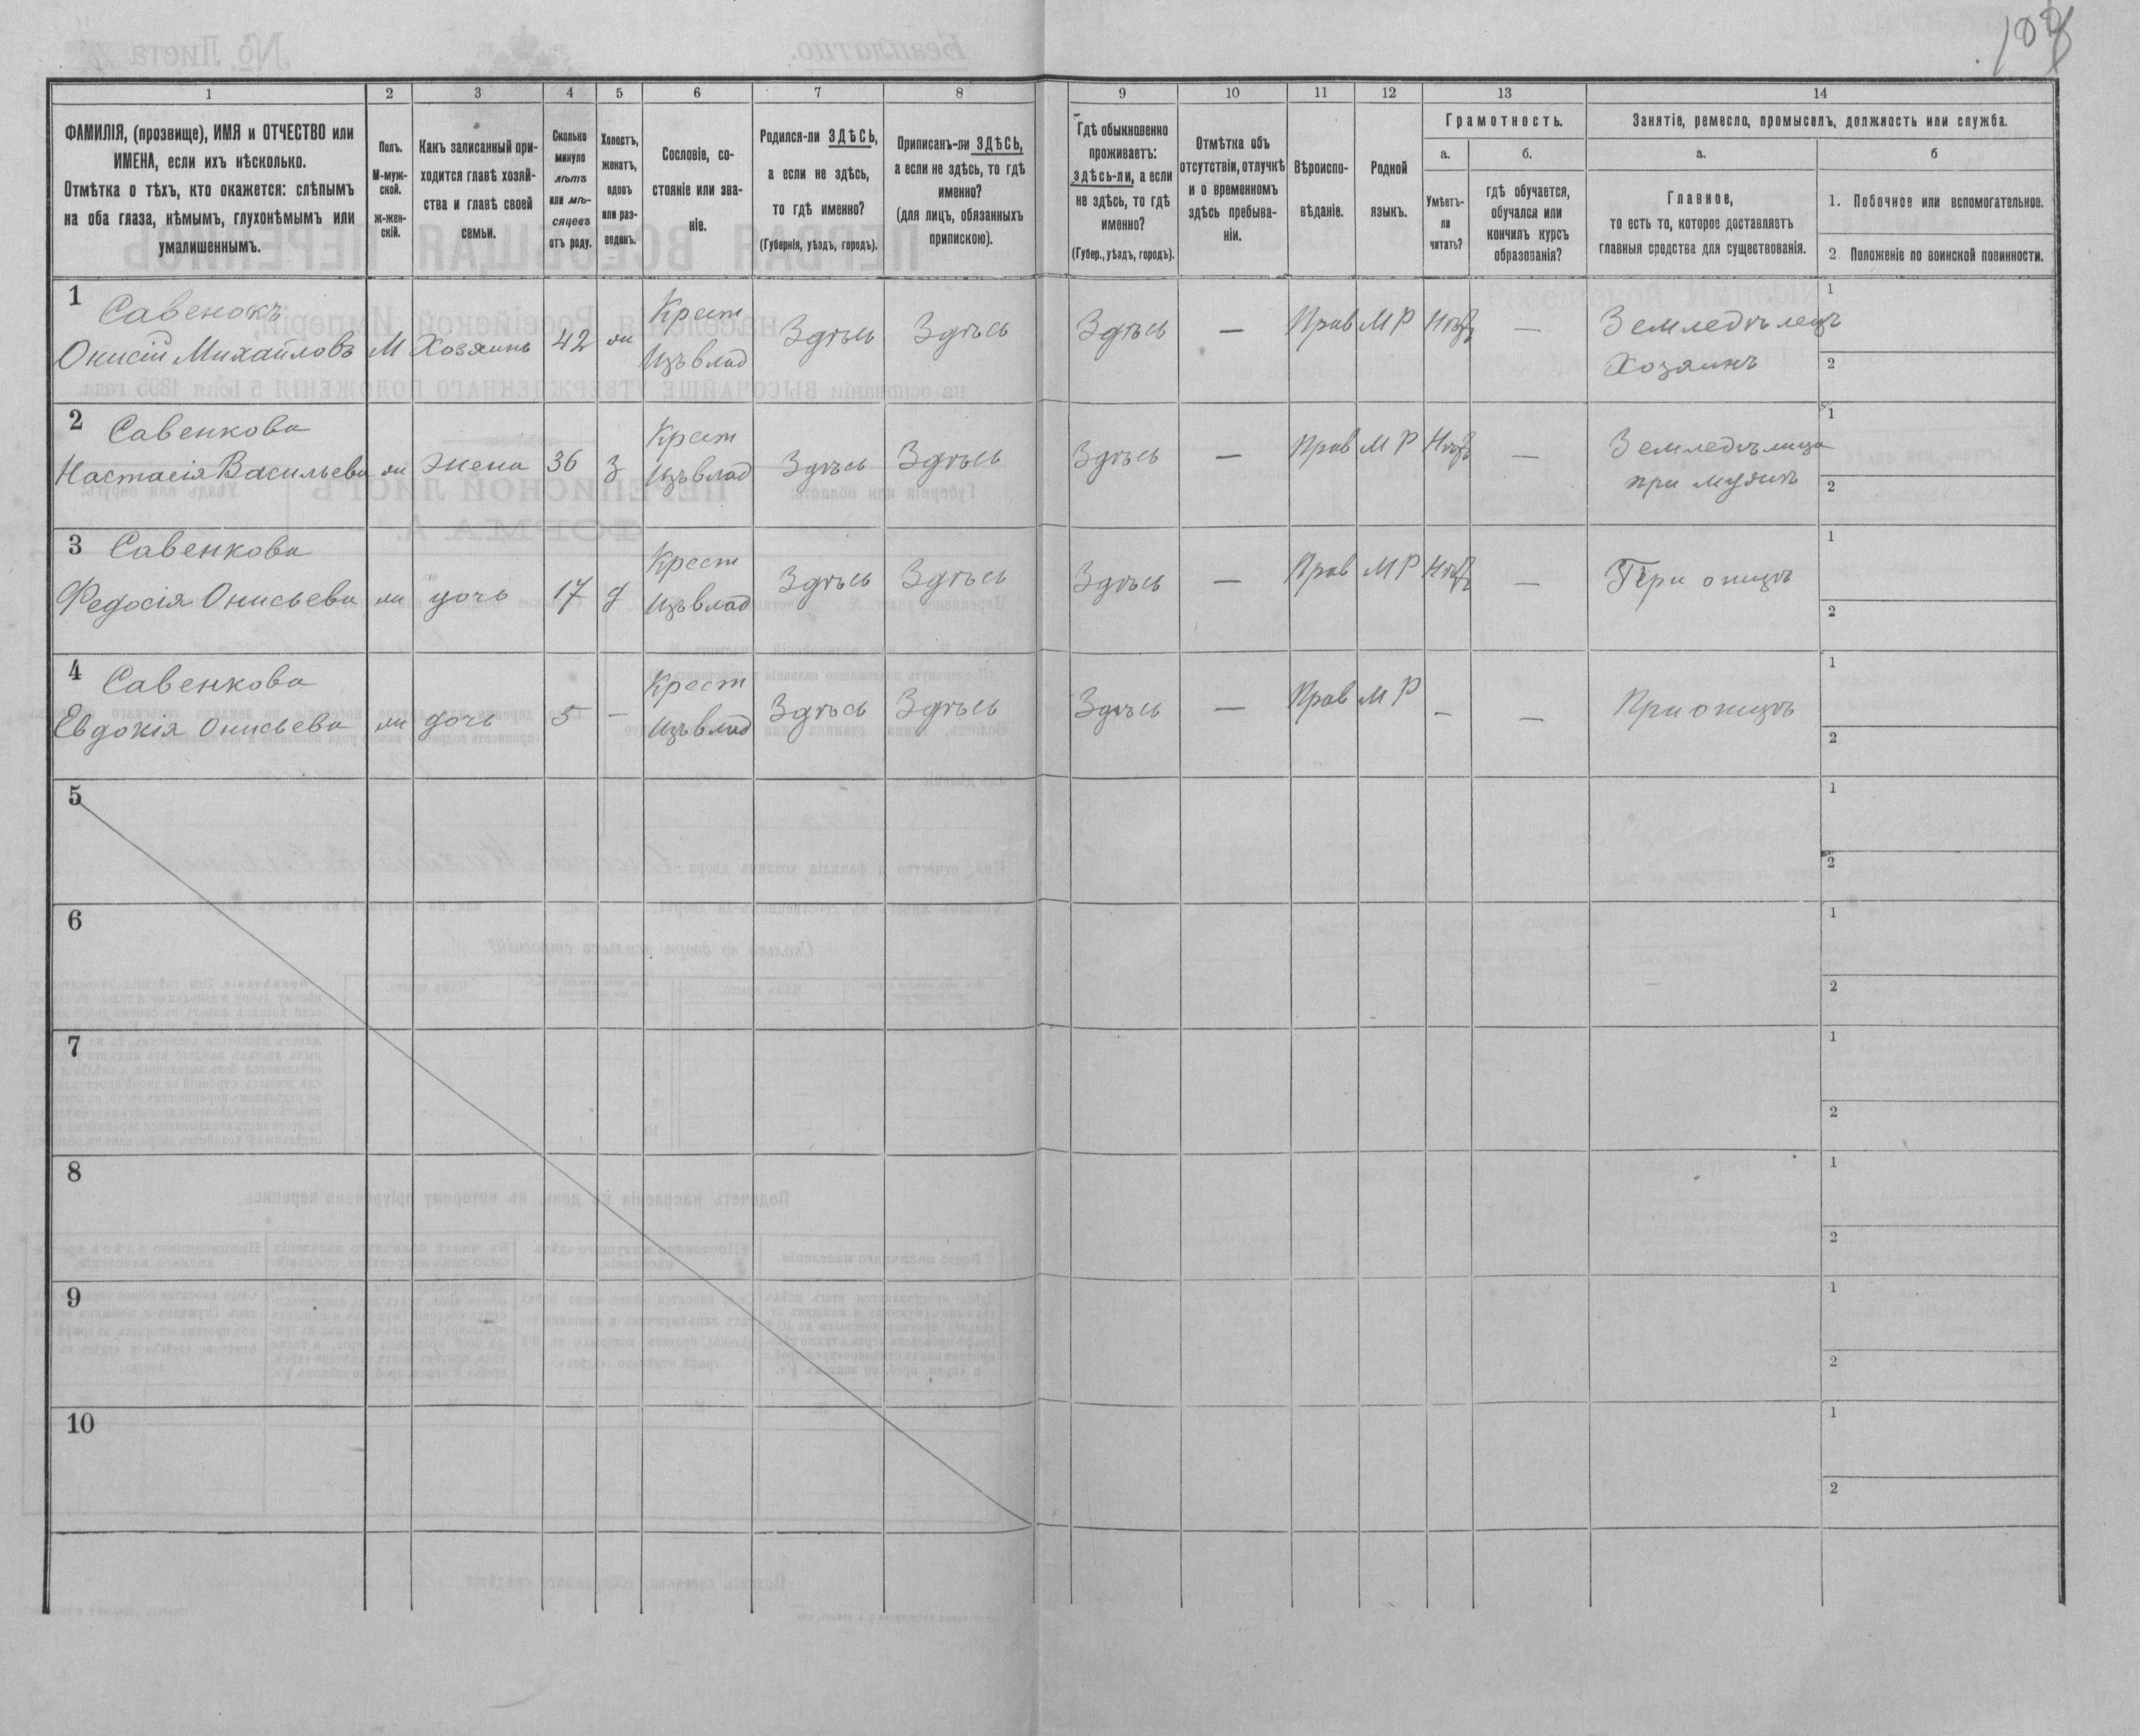 108
1 2 3 4 5 6 7 8 9 10 11 12 13 14
ФАМИЛІЯ, (прозвище), ИМЯ и ОТЧЕСТВО или
ИМЕНА, если ихъ нѣсколько.
Отмѣтка о тѣхъ, кто окажется: слѣпымъ
на оба глаза, нѣмымъ, глухонѣмымъ или
умалишеннымъ.
Полъ.
М-муж-
ской.
ж-жен-
скій.
Какъ записанный при-
ходится главѣ хозяй-
ства и главѣ своей
семьи.
Сколько
минуло
лѣтъ
или мѣ-
сяцевъ
отъ роду.
Холостъ,
женатъ,
вдовъ
или раз-
веденъ.
Сословіе, со-
стояніе или зва-
ніе.
Родился-ли ЗДѢСЬ,
а если не здѣсь,
то гдѣ именно?
(Губернія, уѣздъ, городъ).
Приписанъ-ли ЗДѢСЬ,
а если не здѣсь, то гдѣ
именно?
(для лицъ, обязанныхъ
припискою).
Гдѣ обыкновенно
проживаетъ:
здѣсь-ли, а если
не здѣсь, то гдѣ
именно?
(Губер., уѣздъ, городъ).
Отмѣтка объ
отсутствіи, отлучкѣ
и о временномъ
здѣсь пребыва-
ніи.
Вѣроиспо-
вѣданіе.
Родной
языкъ.
Грамотность.
а.
Умѣетъ-
ли
читать?
б.
гдѣ обучается,
обучался или
кончилъ курсъ
образованія?
Занятіе, ремесло, промыселъ, должность или служба.
а.
Главное,
то есть то, которое доставляетъ
главныя средства для существованія.
б
1. Побочное или вспомогательное.
2. Положеніе по воинской повинности.
1 Савенокъ Крест Землѣделецъ 1
Онисій Михайловъ М Хозяинъ 42 ж Изъ влад Здѣсь Здѣсь Здѣсь — Прав М Р Нѣтъ — Хозяинъ 2
2 Савенкова Крест Земледѣлица 1
Настасія Васильева ж жена 36 З Изъ влад Здѣсь Здѣсь Здѣсь — Прав М Р Нѣтъ — при мужѣ 2
3 Савенкова Крест 1
Федосія Онисьева ж дочь 17 д Изъ влад Здѣсь Здѣсь Здѣсь — Прав М Р Нѣтъ — При отцѣ 2
4 Савенкова Крест 1
Евдокія Онисьева ж дочь 5 — Изъ влад Здѣсь Здѣсь Здѣсь — Прав М Р — — При отцѣ 2
5 1
2
6 1
2
7 1
2
8 1
2
9 1
2
10 1
2